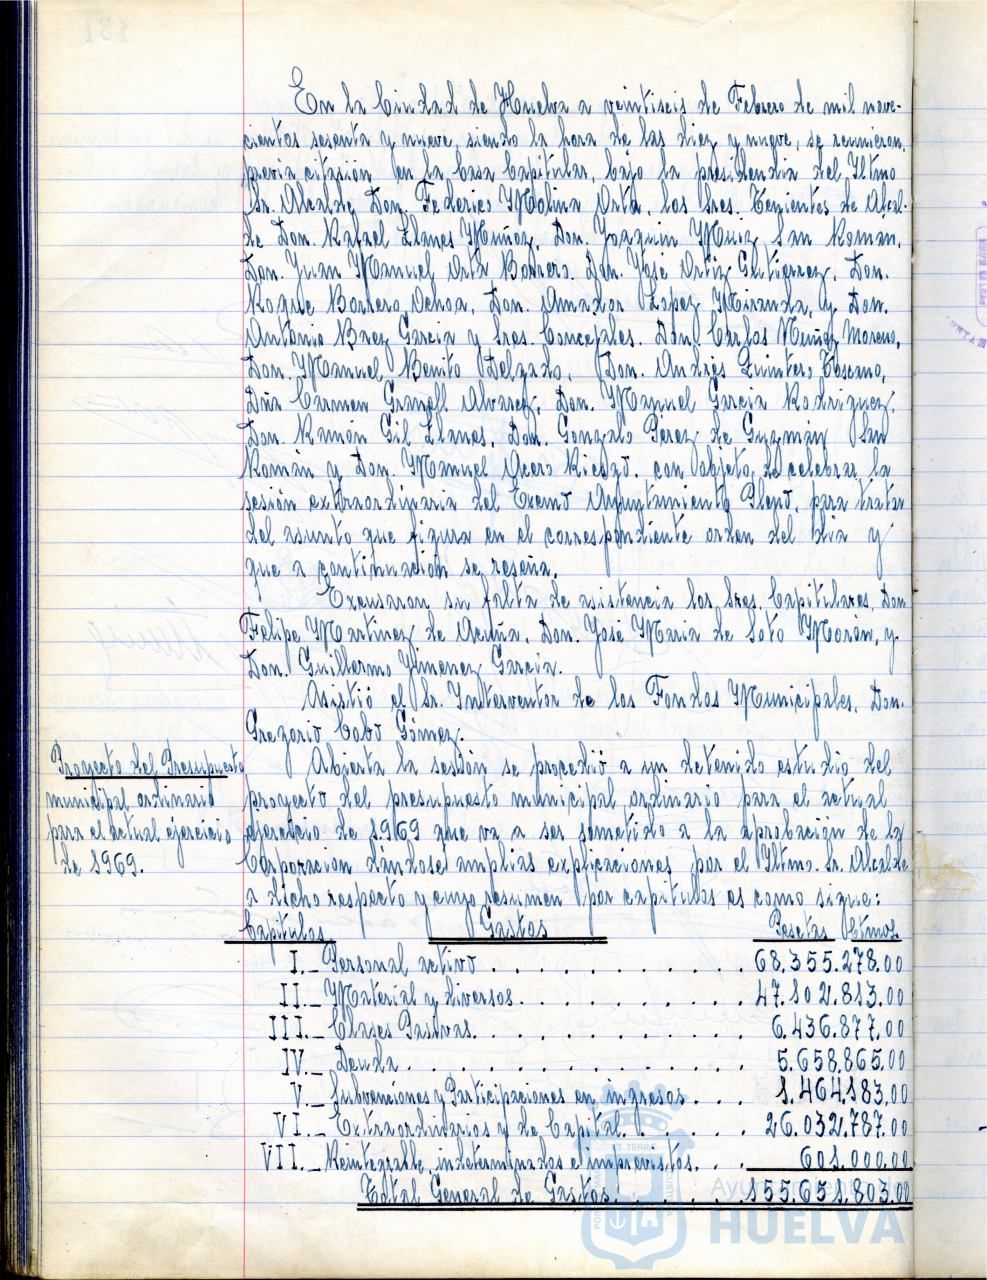 En la Ciudad de Huelva a veintiseis de Febrero de mil nove-
cientos sesenta y nueve, siendo la hora de las diez y nueve, se reunieron,
previa citación en la Casa Capitular, bajo la presidencia del Iltmo
Sr. Alcalde Don Federico Molina Orta, los Sres. Tenientes de Alcal-
de Don. Rafael Llanes Muñoz, Don. Joaquin Muiz San Roman,
Don. Juan Manuel Orta Borrero. Don. José Ortiz Gutierrez, Don.
Roque Borrero Ochoa, Don. Amador Lopez Miranda, y Don.
Antonio Baez Garcia y Sres. Concejales. Don. Carlos Muñoz Moreno,
Don. Manuel Benito Delgado, Don. Andres Quintero Toscano,
Dña Carmen Granell Alvarez, Don. Manuel Garcia Rodriguez,
Don. Ramón Gil Llanes. Don. Gonzalo Pérez de Guzmán San
Román y Don. Manuel Acero Riesgo. con objeto de celebrar la
sesión extraordinaria del Excmo Ayuntamiento Pleno, para tratar
del asunto que figura en el correspondiente orden del dia y
que a continuación se reseña.
Excusaron su falta de asistencia los Sres. Capitulares, Don
Felipe Martinez de Acuña, Don. José Maria de Soto Morón, y
Don. Guillermo Jimenez Garcia.
Asistió el Sr. Interventor de los Fondos Municipales, Don.
Gregorio Cobo Gómez.
Proyecto del Presupuesto
municipal ordinario
para el actual ejercicio
de 1969.
Abierta la sesión se procedió a un detenido estudio del
proyecto del presupuesto municipal ordinario para el actual
ejercicio de 1969 que va a ser sometido a la aprobación de la
Corporacion dándose amplias explicaciones por el Iltmo. Sr. Alcalde
a dicho respecto y cuyo resumen por capitulos es como sigue:
Capitulos Gastos Pesetas Ctmos.
I._ Personal activo . . . . . . . . . 68.355.278.00
II._ Material y diversos. . . . . . . . . 47.102.813.00
III._ Clases Pasivas. . . . . . . . . . 6.436.877.00
IV._ Deuda . . . . . . . . . . . . 5.658.865.00
V._ Subvenciones y Participaciones en ingresos . . . 1.464.183.00
VI._ Extraordinarios y de Capital. . . . . . 26.032.787.00
VII._ Reintegrable, indeterminados e imprevistos. . . 601.000.00
Total General de Gastos: . . . . . . 155.651.803.00
Ayuntamiento de
HUELVA